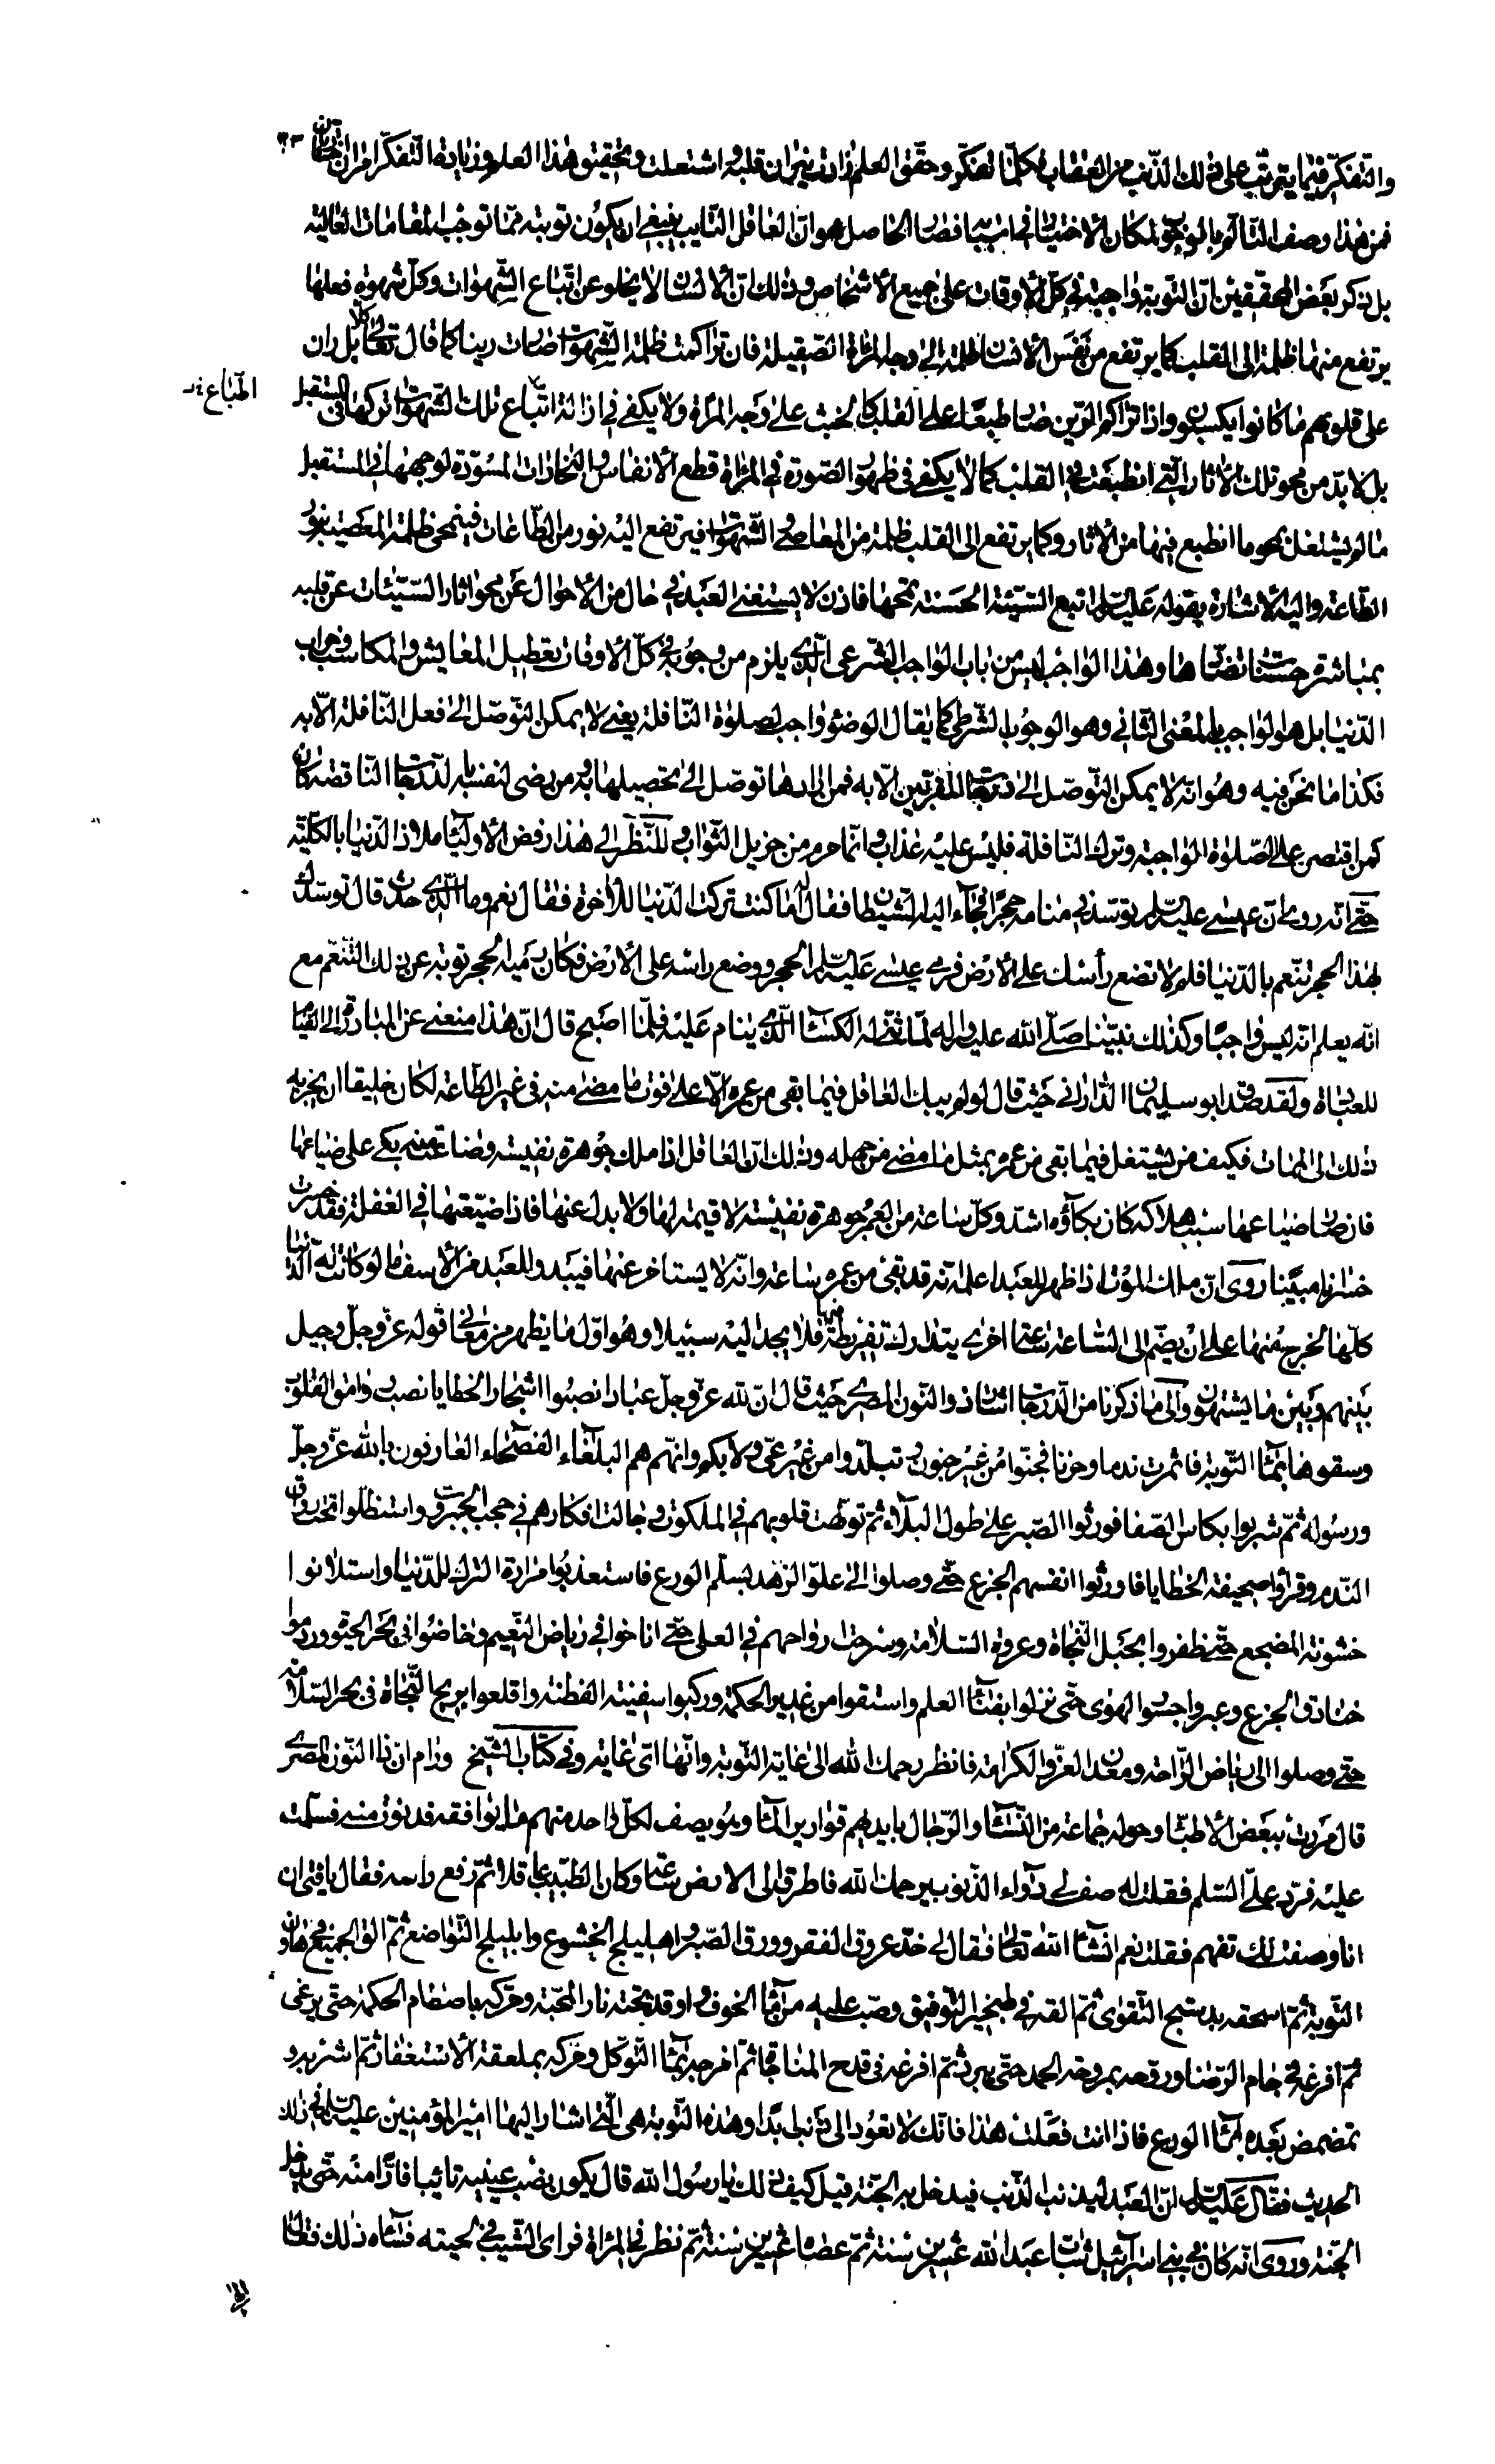 والتفكر فيما يترتب على ذلك الذنب من العقاب فكلما تفكر وحقق العلم زادت نيران قلبه واشتعلت وتحقيق هذا العلم وزيادة التفكر امران اختياريان
فمن هذا وصف التألم بالوجوب لمكان الاختيار في اسبابه فصار الحاصل هو ان العاقل التايب ينبغي ان يكون توبته مما توجب المقامات العالية
بل ذكر بعض المحققين ان التوبة واجبة في كل الأوقات على جميع الأشخاص وذلك ان الأنسان لا يخلو عن اتباع الشهوات وكل شهوة فعلها
يرتفع منها ظلمة الى القلب كما يرتفع من نفس الأنسان ظلمة الى وجه المرأة الصقيلة فان تراكمت ظلمة الشهوات صارت رينا كما قال تعالى كلا بل ران
على قلوبهم ما كانوا يكسبون واذا تراكم الرين صار طبعا على القلب كالخبث على وجه المرأة ولا يكفي في ازالة اتباع تلك الشهوات تركها في المستقبل
بل لا بد من محو تلك الأثار التي انطبعت في القلب كما لا يكفي في ظهور الصورة في المرأة قطع الأنفاس والبخارات المسودة لوجهها في المستقبل
ما لم يشتغل بمحو ما انطبع فيها من الأثار وكما يرتفع الى القلب ظلمة من المعاصي والشهوات فيرتفع اليه نور من الطاعات فينمحي ظلمة المعصية بنور
الطاعة واليه الأشارة بقوله عليه السلام اتبع السيئة الحسنة تمحها فاذن لا يستغني العبد في حال من الأحوال عن محو اثار السيئات عن قلبه
بمباشرة حسنات تضادها وهذا الواجب ليس من باب الواجب الشرعي الذي يلزم من وجوبه في كل الأوقات تعطيل المعايش والمكاسب وخراب
الدنيا بل هو الواجب بالمعنى الثاني وهو الوجوب الشرطي كما يقال الوضوء واجب لصلوة النافلة يعني لا يمكن التوصل الى فعل النافلة الا به
فكذا ما نحن فيه وهو انه لا يمكن التوصل الى درجات المقربين الا به فمن ارادها توصل الى تحصيلها به ومن رضي لنفسه بالدرجات الناقصة كان
كمن اقتصر على الصلوة الواجبة وترك النافلة فليس عليه عذاب وانما حرم من جزيل الثواب وللنظر الى هذا رفض الأولياء ملاذ الدنيا بالكلية
حتى انه روي ان عيسى عليه السلم توسد في منامه حجرا فجاء اليه الشيطان فقال له اما كنت تركت الدنيا للأخرة فقال نعم وما الذي حدث قال توسدك
لهذا الحجر تنعم بالدنيا فلم لا تضع رأسك على الأرض فرمى عيسى عليه السلم الحجر ووضع راسه على الأرض فكان رميه الحجر توبة عن ذلك التنعم مع
انه يعلم انه ليس واجبا وكذلك نبينا صلى الله عليه واله لما الكساء الذي ينام عليه فلما اصبح قال ان هذا منعني عن المبادرة الى القيام
للعبادة ولقد صدق ابو سليمان الداراني حيث قال لو لم يبك العاقل فيما بقي من عمره الا على فوت ما مضى منه في غير الطاعة لكان خليقا ان يخزيه
ذلك الى الممات فكيف من يشتغل فيما بقي من عمره بمثل ما مضى من جهله وذلك ان العاقل اذا ملك جوهرة نفيسة وضاعت منه بكى على ضياعها
فان صار ضياعها سبب هلاكه كان بكاؤه اشد وكل ساعة من العمر جوهرة نفيسة لا قيمة لها ولا بدل عنها فاذا ضيعتها في الغفلة فقد خسرت
خسرانا مبينا روي ان ملك الموت اذا ظهر للعبد اعلمه انه قد بقي من عمره ساعة وانه لا يستاخر عنها فيبدو للعبد من الأسف ما لو كانت له الدنيا
كلها لخرج منها على ان يضم الى الساعة ساعة اخرى يتدارك تفريطه فيها فلا يجد اليه سبيلا وهو اول ما يظهر من معاني قوله عز وجل وحيل
بينهم وبين ما يشتهون والى ما ذكرنا من الدرجات اشار ذو النون المصري حيث قال ان لله عز وجل عبادا نصبوا اشجار الخطايا نصب رامق القلوب
وسقوها بماء التوبة فاثمرت ندما وحزنا فجنوا من غير جنون وتبلدوا من غير عي ولا بكم وانهم هم البلغاء الفصحاء العارفون بالله عز وجل
ورسوله ثم شربوا بكاس الصفا فورثوا الصبر على طول البلاء ثم تولهت قلوبهم في الملكوت وجالت افكارهم في حجب الجبروت واستظلوا تحت رواق
الندم وقرأوا صحيفة الخطايا فاورثوا انفسهم الجزع حتى وصلوا الى علو الزهد بسلم الورع فاستعذبوا مرارة الترك للدنيا واستلانوا
خشونة المضجع حتى ظفروا بحبل النجاة وعروة السلامة وسرحت ارواحهم في العلى حتى اناخوا في رياض النعيم وخاضوا في بحر الحيوة وردموا
خنادق الجزع وعبروا جسور الهوى حتى نزلوا بفناء العلم واستقوا من غدير الحكمة وركبوا سفينة الفطنة واقلعوا بريح النجاة في بحر السلامة
حتى وصلوا الى رياض الراحة ومعدن العز والكرامة فانظر رحمك الله الى غاية التوبة وانها اي غاية وفي كتاب الشيخ ورام ان ذا النون المصري
قال مررت ببعض الأطباء وحوله جماعة من النساء والرجال بايديهم قوارير الماء وهو يصف لكل واحد منهم ما يوافقه فدنوت منه فسلمت
عليه فرد علي السلم فقلت له صف لي دواء الذنوب يرحمك الله فاطرق الى الارض ساعة وكان الطبيب عاقلا ثم رفع راسه فقال يا فتى ان
انا وصفت لك تفهم فقلت نعم انشاء الله تعالى فقال لي خذ عروق الفقر وورق الصبر واهليلج الخشوع وابليلج التواضع ثم الق الجميع في هاون
التوبة ثم اسحقه بدستج التقوى ثم القه في طنجير التوفيق وصب عليه من ماء الخوف واوقد تحته نار المحبة وحركه باصطام الحكمة حتى يرغى
ثم افرغه في جام الرضا وروحه بمروحة الحمد حتى يبرد ثم افرغه في قدح المناجاة ثم امزجه بماء التوكل وحركه بملعقة الأستغفار ثم اشربه و
تمضمض بعده بماء الورع فاذا انت فعلت هذا فانك لا تعود الى ذنب ابدا وهذه التوبة هي التي اشار اليها امير المؤمنين عليه السلم في ذلك
الحديث فقال عليه السلم ان العبد ليذنب الذنب فيدخل به الجنة قيل كيف ذلك يا رسول الله قال يكون نصب عينيه تايبا فارا منه حتى يدخل
الجنة وروي انه كان في بني اسرائيل شاب عبد الله عشرين سنة ثم عصاه عشرين سنة ثم نظر في المرأة فراى الشيب في لحيته فساءه ذلك فقال